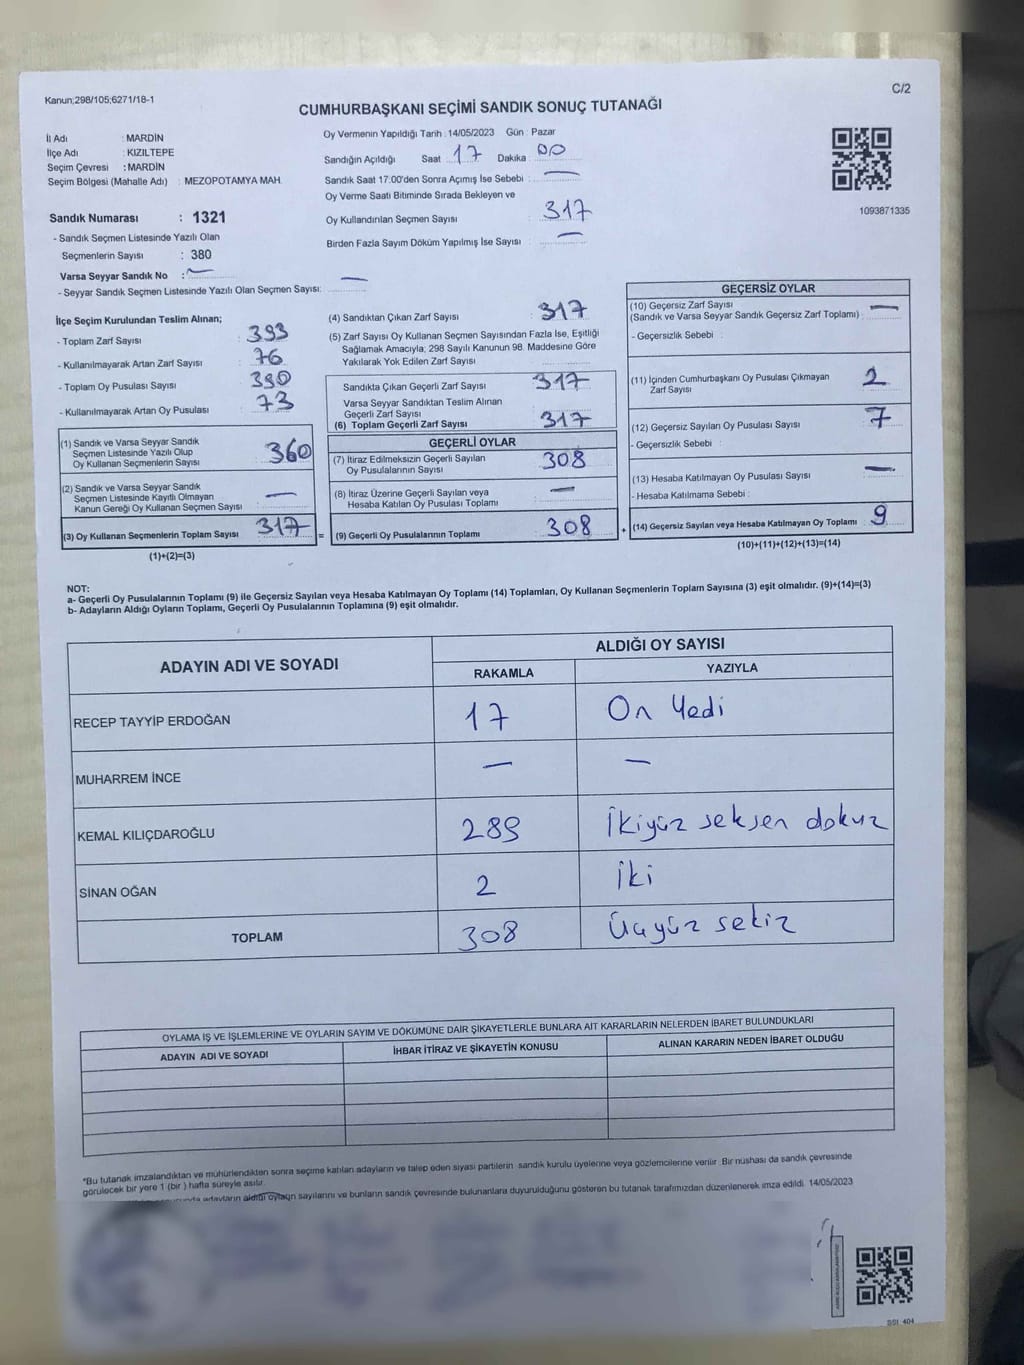 Kanun;298/105;6271/18-1
C/2
CUMHURBAŞKANI SEÇİMİ SANDIK SONUÇ TUTANAĞI
İl Adı : MARDİN
İlçe Adı : KIZILTEPE
Seçim Çevresi : MARDİN
Seçim Bölgesi (Mahalle Adı) : MEZOPOTAMYA MAH.
Oy Vermenin Yapıldığı Tarih : 14/05/2023 Gün : Pazar
Sandığın Açıldığı Saat 17 Dakika 00
Sandık Saat 17:00'den Sonra Açımış İse Sebebi : —
Oy Verme Saati Bitiminde Sırada Bekleyen ve
Oy Kullandırılan Seçmen Sayısı 317
Birden Fazla Sayım Döküm Yapılmış İse Sayısı : —
1093871335
Sandık Numarası : 1321
- Sandık Seçmen Listesinde Yazılı Olan
Seçmenlerin Sayısı : 380
Varsa Seyyar Sandık No : —
- Seyyar Sandık Seçmen Listesinde Yazılı Olan Seçmen Sayısı: —
İlçe Seçim Kurulundan Teslim Alınan;
- Toplam Zarf Sayısı : 393
- Kullanılmayarak Artan Zarf Sayısı : 76
- Toplam Oy Pusulası Sayısı : 390
- Kullanılmayarak Artan Oy Pusulası : 73
(1) Sandık ve Varsa Seyyar Sandık
Seçmen Listesinde Yazılı Olup
Oy Kullanan Seçmenlerin Sayısı 360
(2) Sandık ve Varsa Seyyar Sandık
Seçmen Listesinde Kayıtlı Olmayan
Kanun Gereği Oy Kullanan Seçmen Sayısı —
(3) Oy Kullanan Seçmenlerin Toplam Sayısı 317
(1)+(2)=(3)
(4) Sandıktan Çıkan Zarf Sayısı : 317
(5) Zarf Sayısı Oy Kullanan Seçmen Sayısından Fazla İse, Eşitliği
Sağlamak Amacıyla; 298 Sayılı Kanunun 98. Maddesine Göre
Yakılarak Yok Edilen Zarf Sayısı
Sandıkta Çıkan Geçerli Zarf Sayısı 317
Varsa Seyyar Sandıktan Teslim Alınan
Geçerli Zarf Sayısı
(6) Toplam Geçerli Zarf Sayısı 317
GEÇERLİ OYLAR
(7) İtiraz Edilmeksizin Geçerli Sayılan
Oy Pusulalarının Sayısı 308
(8) İtiraz Üzerine Geçerli Sayılan veya
Hesaba Katılan Oy Pusulası Toplamı —
= (9) Geçerli Oy Pusulalarının Toplamı 308 +
GEÇERSİZ OYLAR
(10) Geçersiz Zarf Sayısı
(Sandık ve Varsa Seyyar Sandık Geçersiz Zarf Toplamı) : —
- Geçersizlik Sebebi :
(11) İçinden Cumhurbaşkanı Oy Pusulası Çıkmayan
Zarf Sayısı 2
(12) Geçersiz Sayılan Oy Pusulası Sayısı 7
- Geçersizlik Sebebi :
(13) Hesaba Katılmayan Oy Pusulası Sayısı —
- Hesaba Katılmama Sebebi :
(14) Geçersiz Sayılan veya Hesaba Katılmayan Oy Toplamı 9
(10)+(11)+(12)+(13)=(14)
NOT:
a- Geçerli Oy Pusulalarının Toplamı (9) ile Geçersiz Sayılan veya Hesaba Katılmayan Oy Toplamı (14) Toplamları, Oy Kullanan Seçmenlerin Toplam Sayısına (3) eşit olmalıdır. (9)+(14)=(3)
b- Adayların Aldığı Oyların Toplamı, Geçerli Oy Pusulalarının Toplamına (9) eşit olmalıdır.
ADAYIN ADI VE SOYADI
ALDIĞI OY SAYISI
RAKAMLA YAZIYLA
RECEP TAYYİP ERDOĞAN 17 On Yedi
MUHARREM İNCE — —
KEMAL KILIÇDAROĞLU 289 İkiyüz seksen dokuz
SİNAN OĞAN 2 İki
TOPLAM 308 Üçyüz sekiz
OYLAMA İŞ VE İŞLEMLERİNE VE OYLARIN SAYIM VE DÖKÜMÜNE DAİR ŞİKAYETLERLE BUNLARA AİT KARARLARIN NELERDEN İBARET BULUNDUKLARI
ADAYIN ADI VE SOYADI İHBAR İTİRAZ VE ŞİKAYETİN KONUSU ALINAN KARARIN NEDEN İBARET OLDUĞU
*Bu tutanak imzalandıktan ve mühürlendikten sonra seçime katılan adayların ve talep eden siyasi partilerin sandık kurulu üyelerine veya gözlemcilerine verilir. Bir nüshası da sandık çevresinde
görülecek bir yere 1 (bir ) hafta süreyle asılır.
adayların aldığı oyların sayılarını ve bunların sandık çevresinde bulunanlara duyurulduğunu gösteren bu tutanak tarafımızdan düzenlenerek imza edildi. 14/05/2023